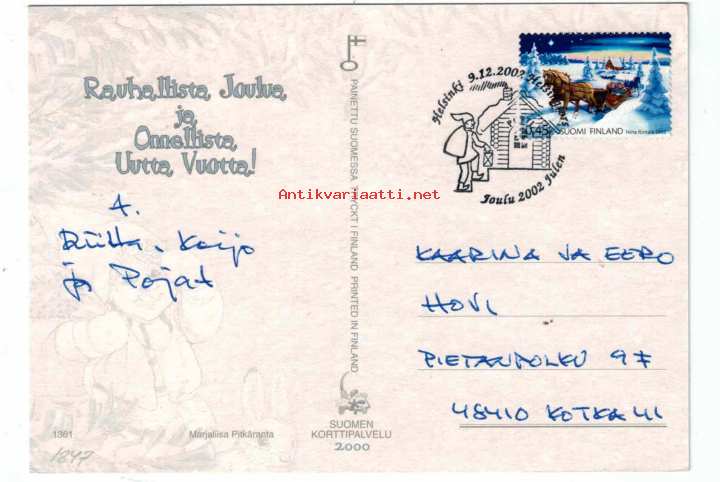 Rauhallista Joulua
ja
Onnellista
Uutta Vuotta!
T.
Riitta, Keijo
ja Pojat
1361
Marjaliisa Pitkäranta
1847
PAINETTU SUOMESSA TRYCKT I FINLAND PRINTED IN FINLAND
SUOMEN
KORTTIPALVELU
2000
Antikvariaatti.net
Helsinki 9.12.2002 Helsingfors
Joulu 2002 Julen
0,45 SUOMI FINLAND
KAARINA JA EERO
HOVI
PIETANPOLKU 9 F
48410 KOTKA 41